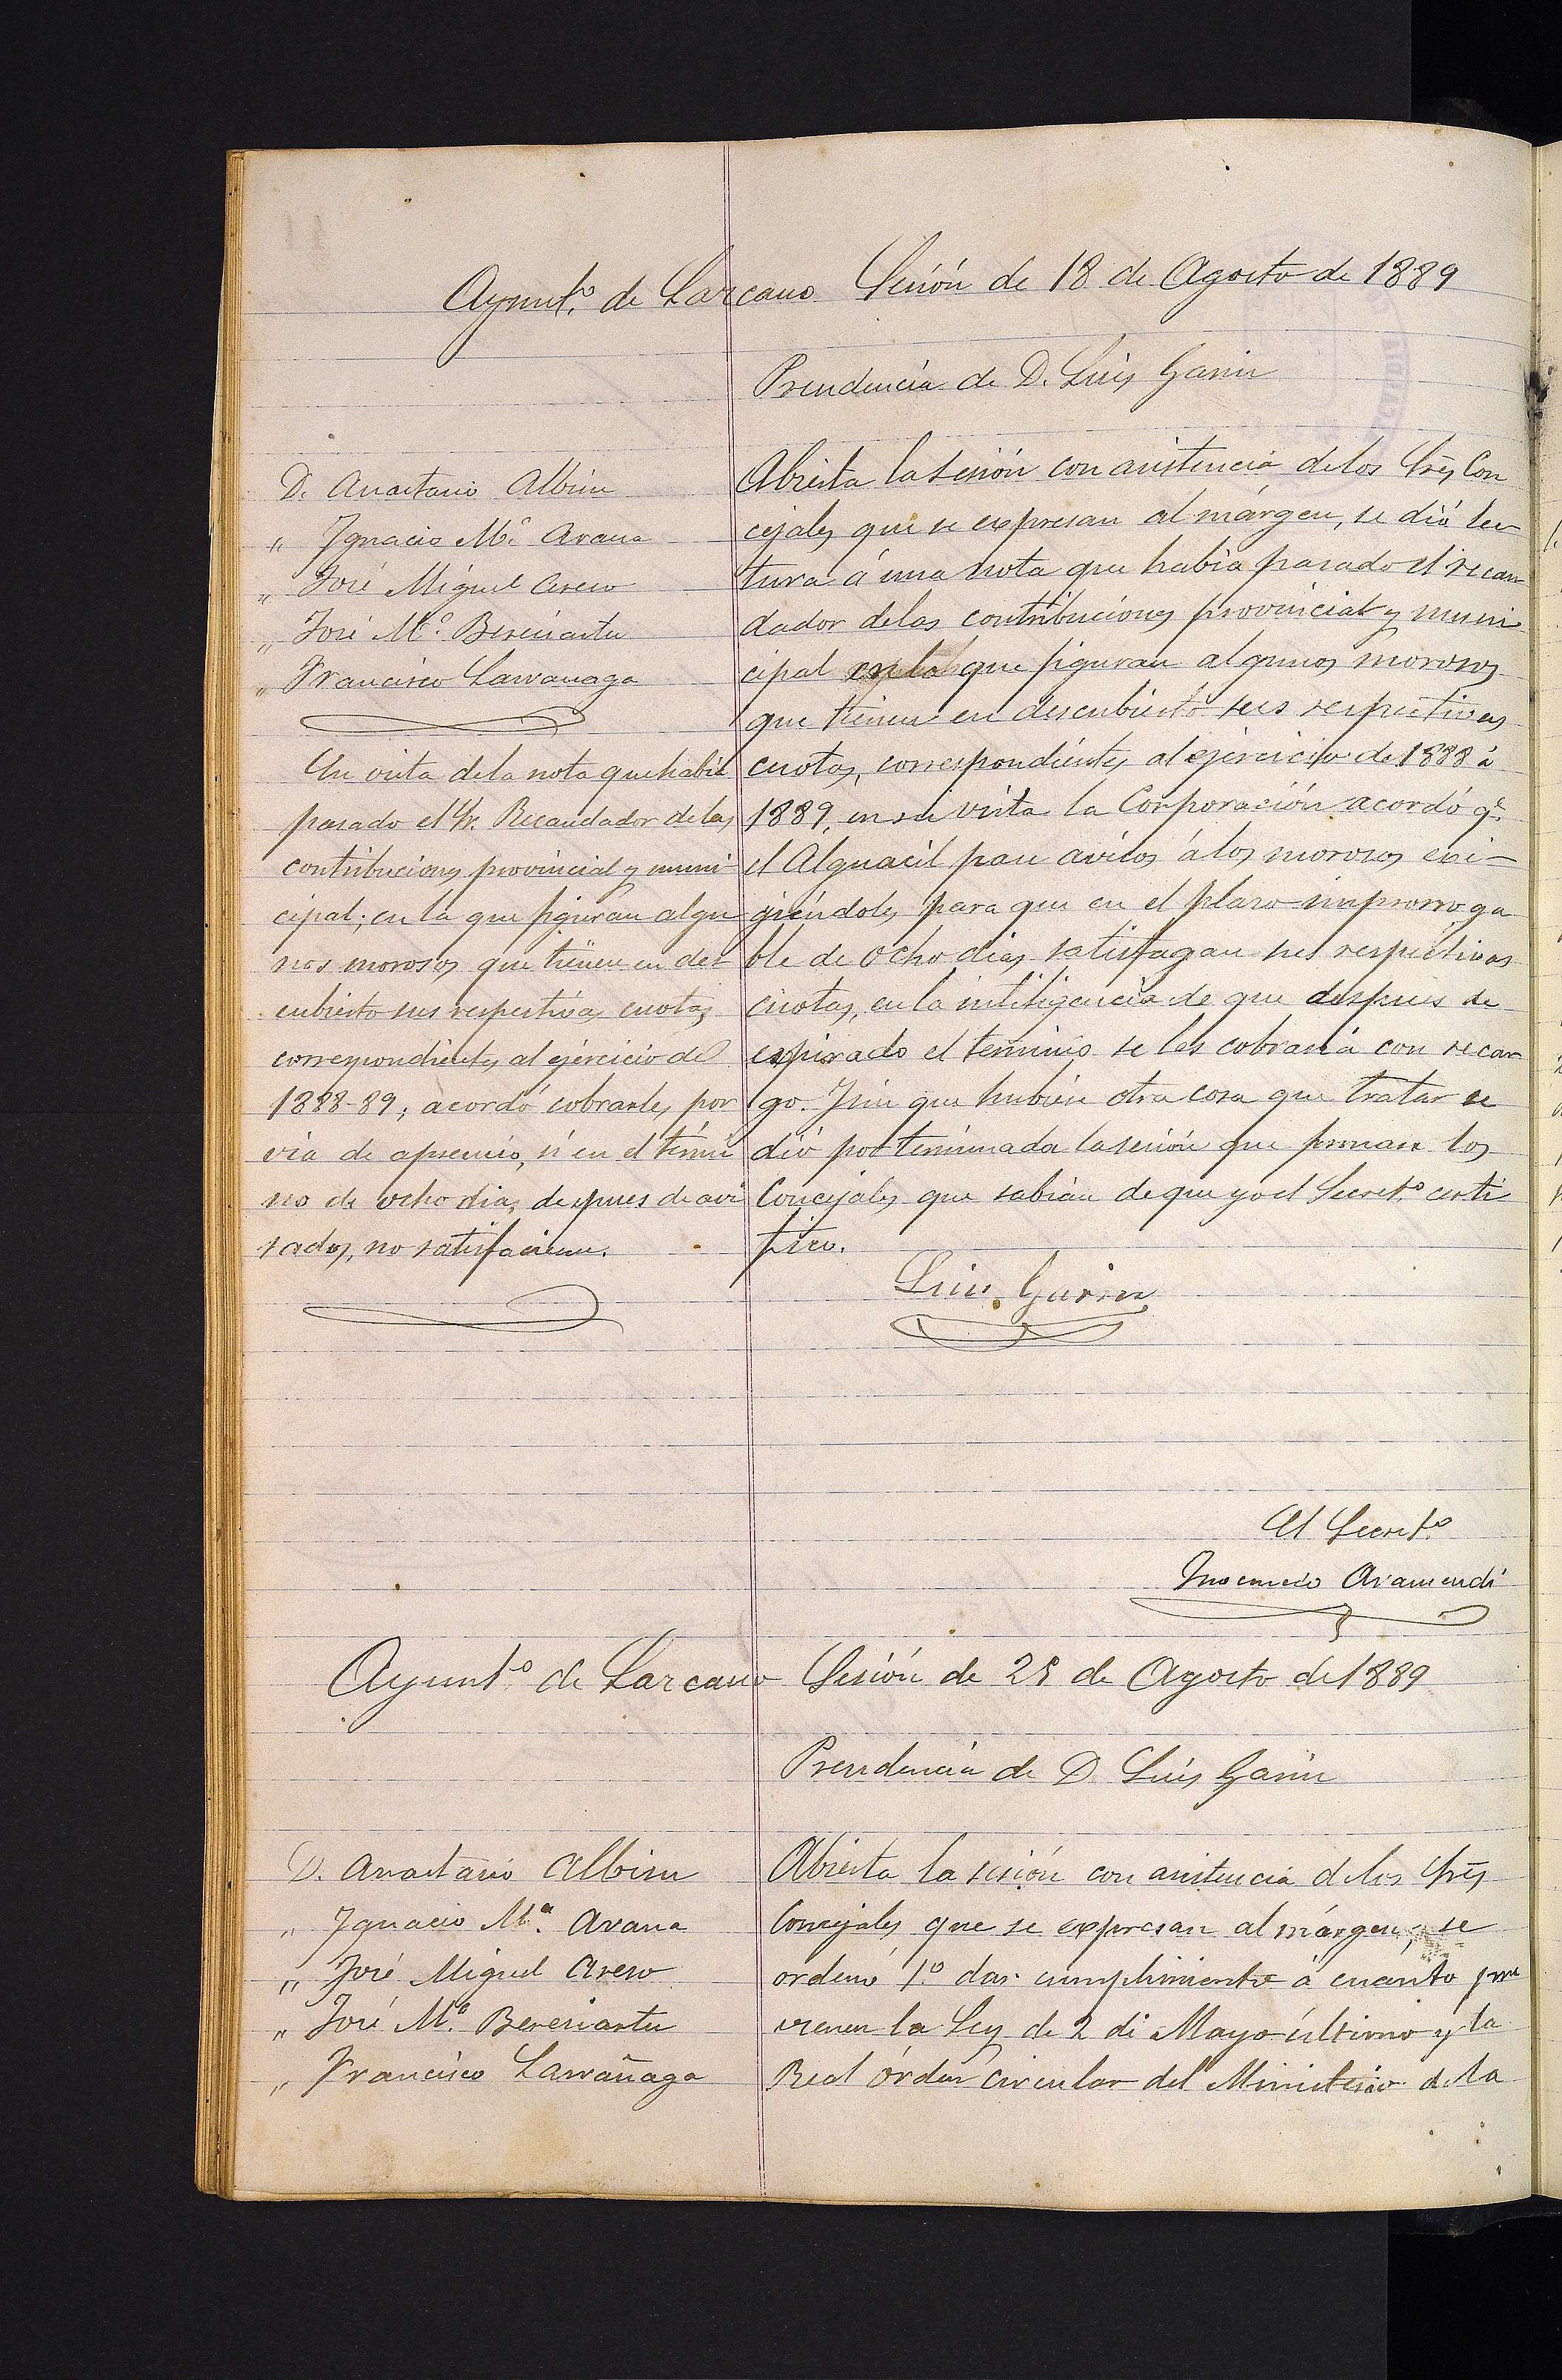 Ayunt.º de Lazcano Sesión de 18 de Agosto de 1889
Presidencia de D. Luis Garin
D. Anastasio Albisu
" Ignacio M.ª Arana
" José Miguel Areso
" José M.ª Bereciartu
" Francisco Larrañaga
En vista de la nota que había
pasado el Sr. Recaudador de las
contribuciones provincial y muni-
cipal; en la que figuran algu
nos morosos que tienen en des
cubierto sus respectivas cuotas
correspondientes al ejercicio de
1888-89; acordó cobrarles por
via de apremio, si en el térmi
no de ocho dias, despues de avi
sados, no satisfacieren.
Abierta la sesión con asistencia de los Sres Con
cejales que se expresan al márgen, se dió lec
tura á una nota que había pasado el recau
dador de las contribuciones provincial y muni
cipal en la que figuran algunos morosos
que tienen en descubierto sus respectivas
cuotas, correspondientes al ejercicio de 1888 á
1889, en su vista la Corporación acordó q.e
el Alguacil pase avisos á los morosos exi-
giéndoles para que en el plazo improrroga
ble de ocho dias satisfagan sus respectivas
cuotas, en la inteligencia de que despues de
espirado el término se les cobraría con recar
go. Y sin que hubiese otra cosa que tratar se
dió por terminada la sesión que firman los
Concejales que sabían de que yo el Secret.º certi
fico.
Luis Garin
El Secret.º
Inocencio Aramendi
Ayunt.º de Lazcano Sesión de 25 de Agosto de 1889
Presidencia de D. Luis Garin
D. Anastasio Albisu
" Ignacio M.ª Arana
" José Miguel Areso
" José M.ª Bereciartu
" Francisco Larrañaga
Abierta la sesión con asistencia de los Sres
Concejales que se expresan al márgen, se
ordenó 1.º dar cumplimiento á cuanto pre
vienen la Ley de 2 de Mayo último y la
Real órden circular del Ministerio de la